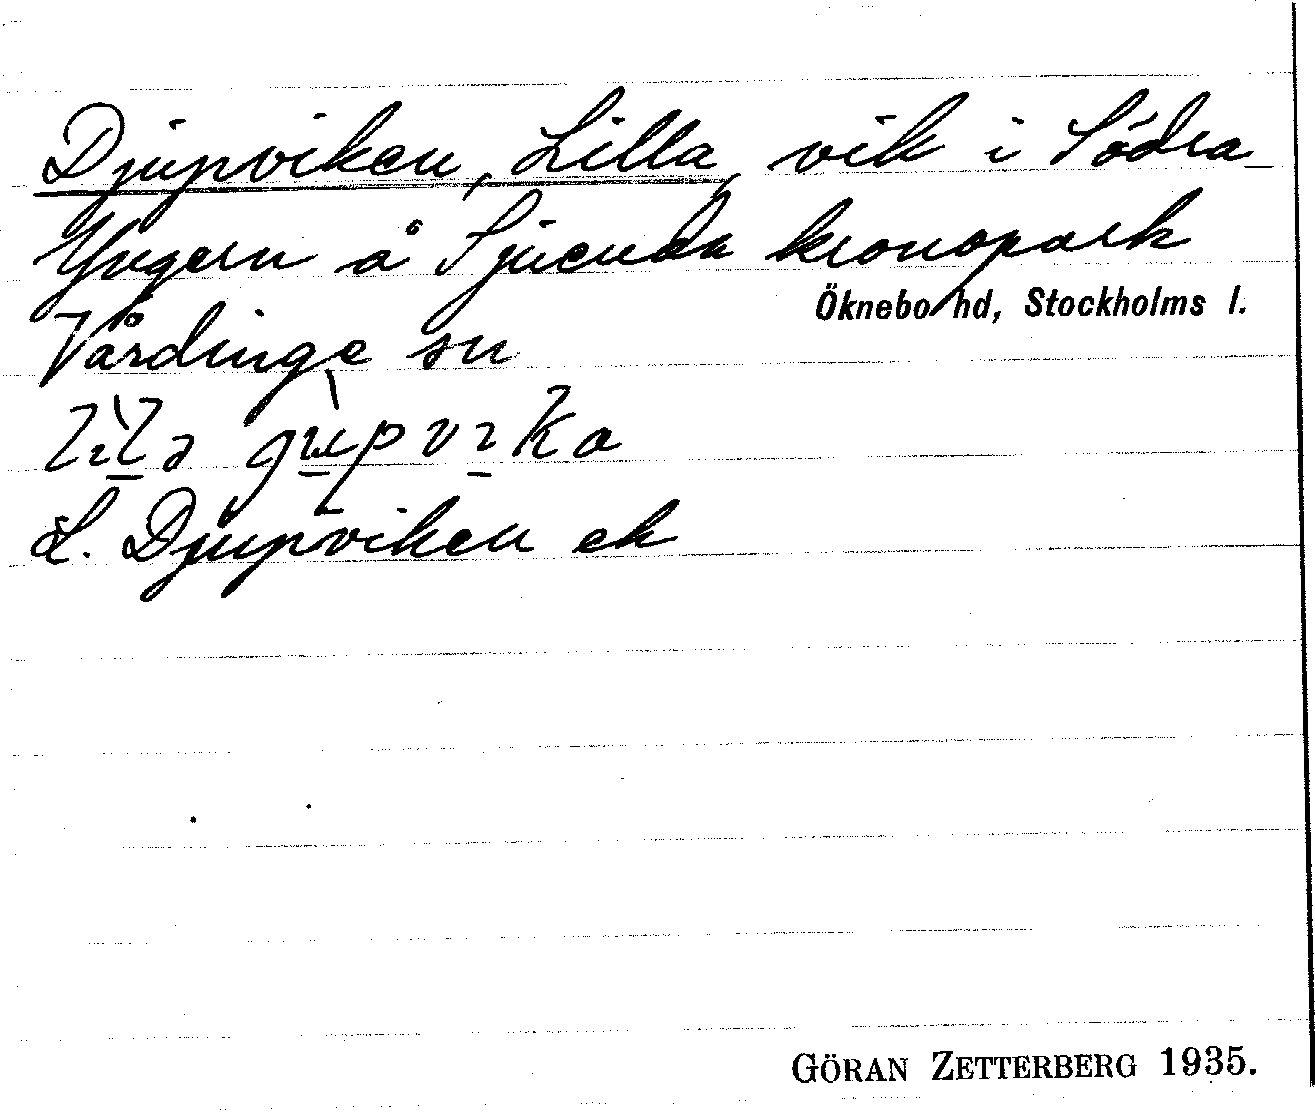 Djupviken, Lilla, vik i Södra
Yngern å Sjuenda kronopark
Öknebo hd, Stockholms l.
Vårdinge sn
L. Djupviken ek
GÖRAN ZETTERBERG 1935.